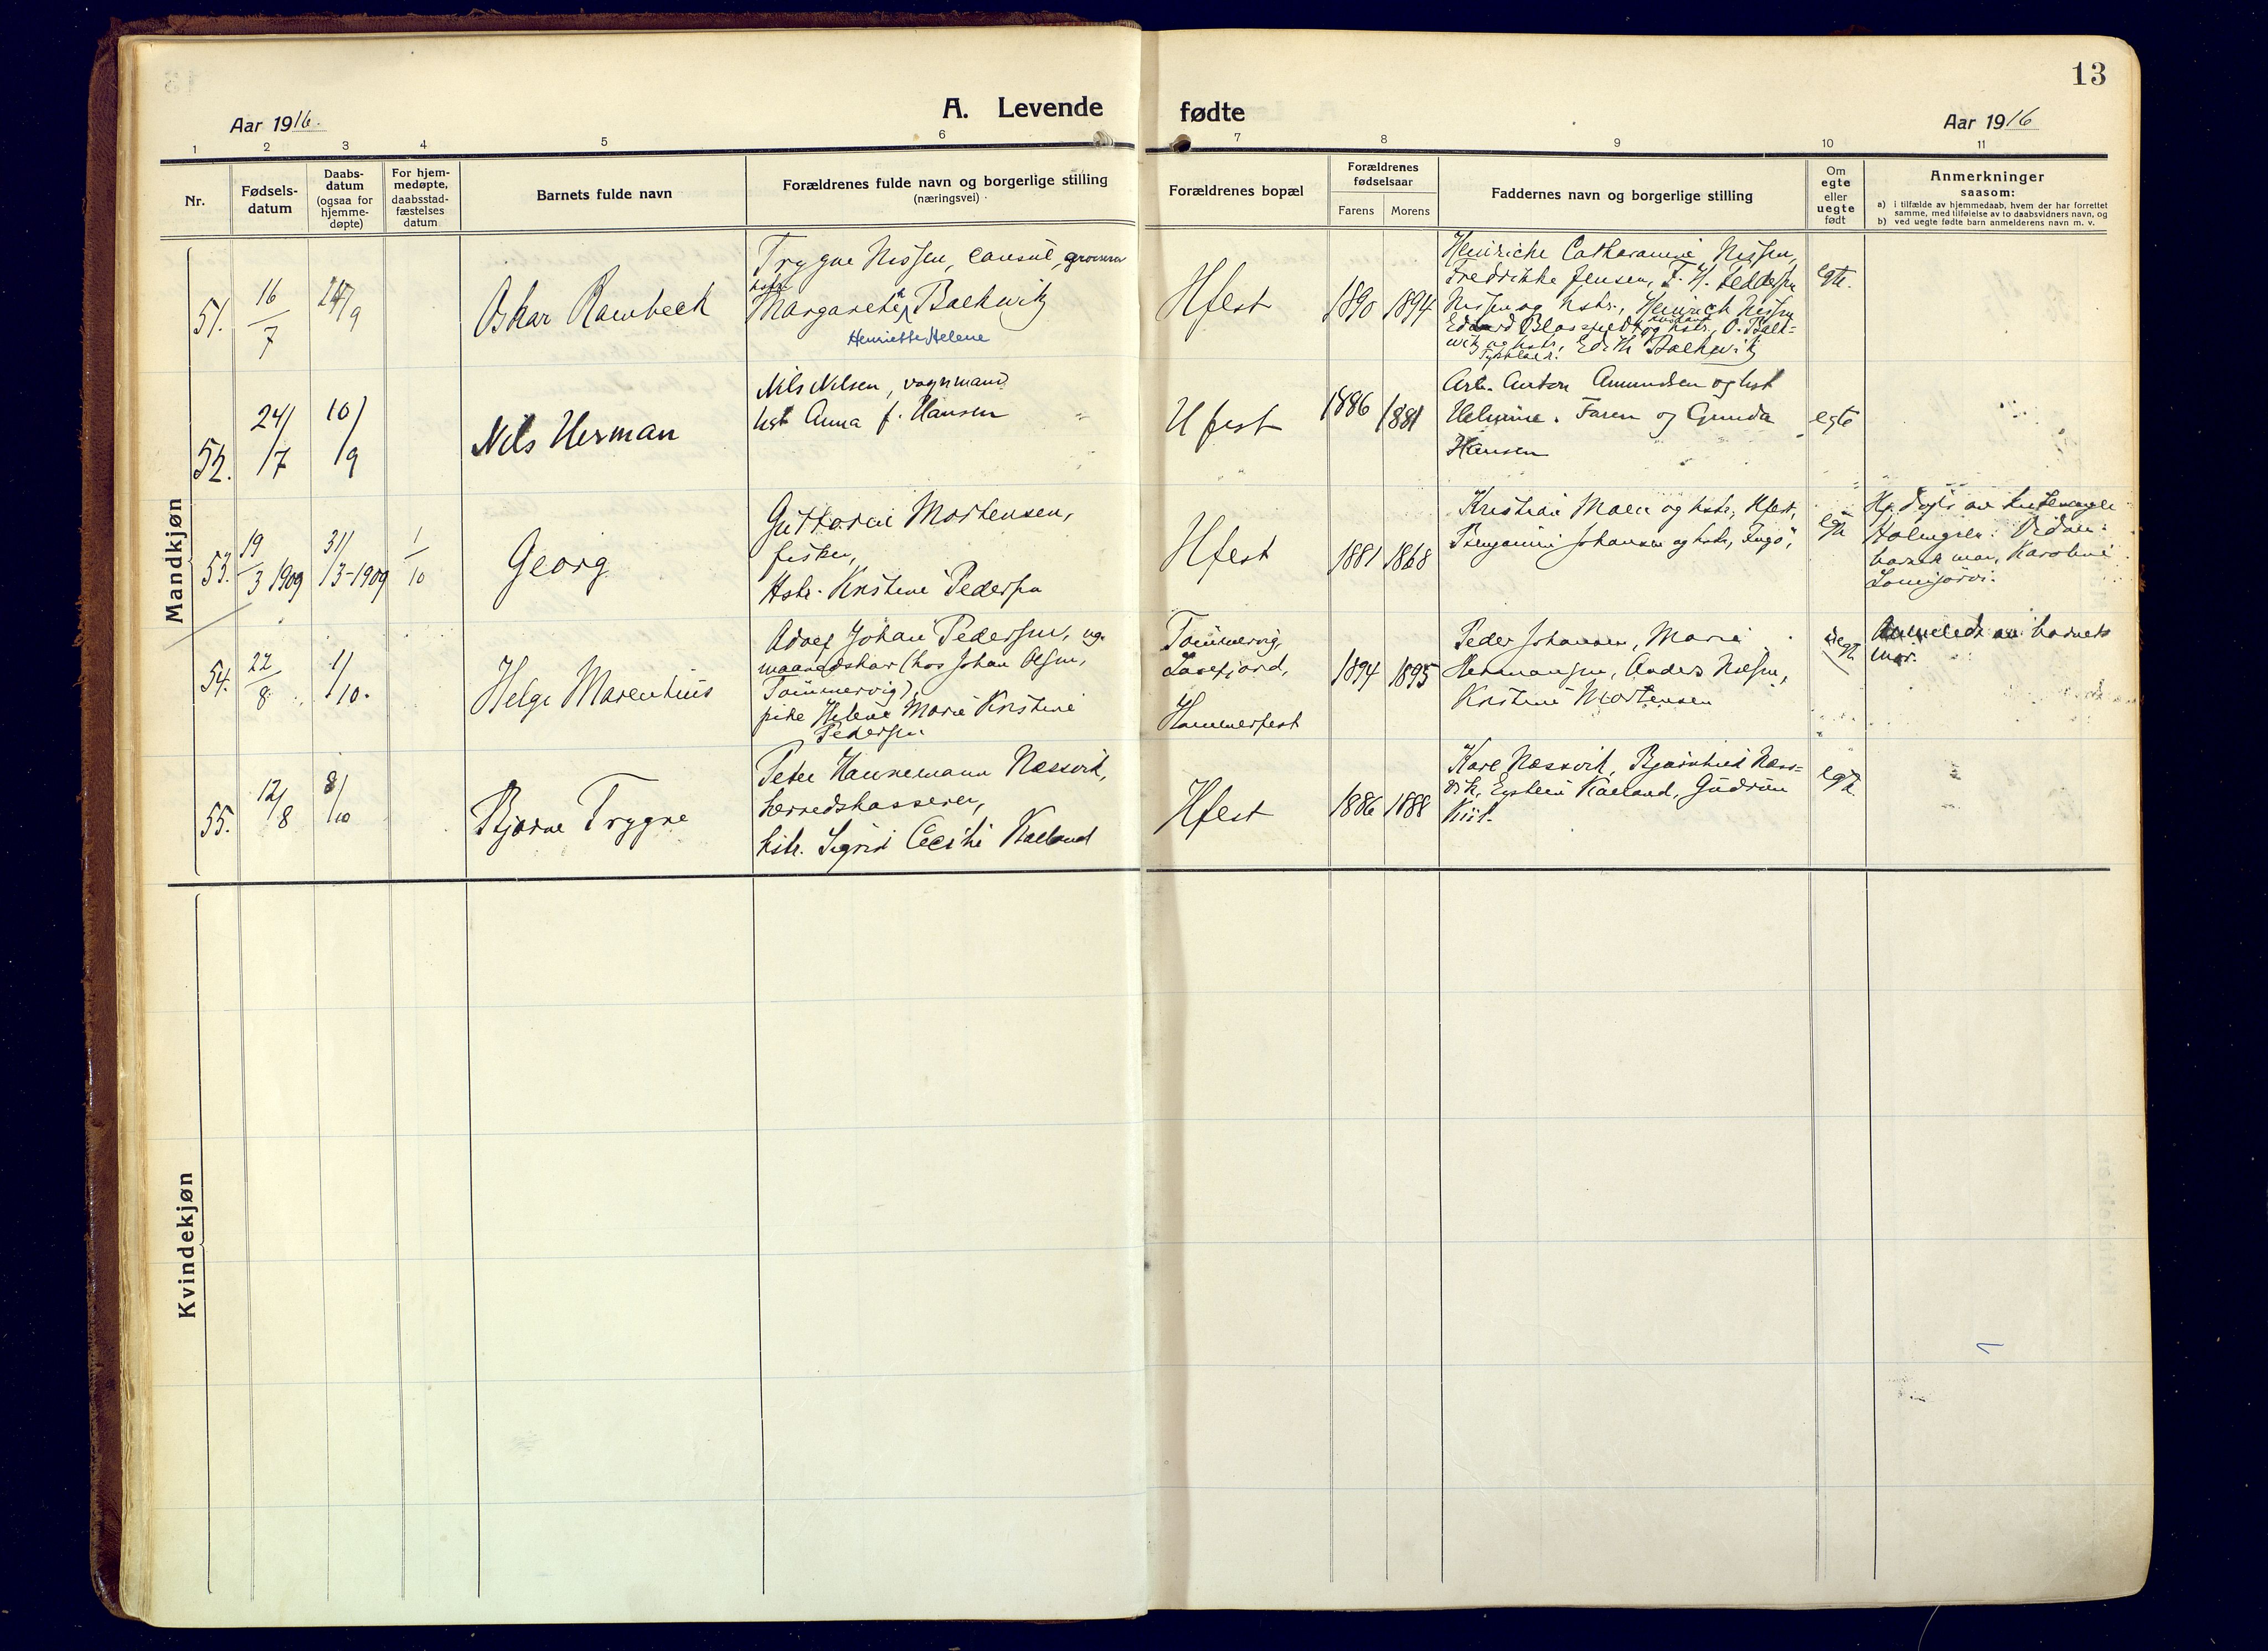 13
A. Levende fødte
Aar 1916.
Aar 1916
1 2 3 4 5 6 7 8 9 10 11
Nr.
Fødsels-
datum
Daabs-
datum
(ogsaa for
hjemme-
døpte)
For hjem-
medøpte,
daabsstad-
fæstelses
datum
Barnets fulde navn
Forældrenes fulde navn og borgerlige stilling
(næringsvei)
Forældrenes bopæl
Forældrenes
fødselsaar
Farens Morens
Faddernes navn og borgerlige stilling
Om
egte
eller
uegte
født
Anmerkninger
saasom:
a) i tilfælde av hjemmedaab, hvem der har forrettet
samme, med tilføielse av to daabsvidners navn, og
b) ved uegte fødte barn anmelderens navn m. v.
Mandkjøn
51.
16/7
24/9
Oskar Rambech
Trygve Nissen, consul, grosserer
hstr.
Margarethe Backwitz
Henriette Helene
Hfest
1890 1894
Heinriche Catharamine Nissen,
Fredrikke Jensen, F. H. Feddersen
Nissen og hstr., Heinrich Nissen
og hstr., O. Back-
witz og hstr., Edith Backwitz
egte.
52.
24/7
10/9
Nils Herman
Nils Nilsen, vognmand
hst Anna f. Hansen
Hfest
1886 1881
Arb. Anton Amundsen og hst
Helmine. Faren og Gunda
Hansen
egte
53.
19/3 1909
31/3-1909
1/10
Georg
Guttorm Mortensen,
fisker,
Hstr. Kristine Pedersen
Hfest
1881 1868
Kristian Moen og hstr., Hfest,
Benjamin Johansen og hstr., Ingø,
egte
Hj.døpt av
Holmgren.
barnets mor, Karoline
Lomijärvi.
54.
22/8
1/10.
Helge Marenhius
Adolf Johan Pedersen, ug.
maanedskar (hos Johan Olsen,
Tömmervig),
pike Helene Marie Kristine
Pedersen
Tömmervig,
Hammerfest
1894 1895
Peder Johansen, Marie
Hermansen, Anders Nilsen,
Kristine Mortensen
uegte
Anmeldt av barnets
mor.
55.
12/8
8/10
Bjarne Trygve
Peter Hannemann Næssvik,
herredskasserer,
hstr. Sigrid Cecilie Kaeland
Hfest
1886 1888
Kare Næssvik, Bjarnhild Næss-
vik, Eystein Kaeland, Gudrun
Kiil.
egte
Kvindekjøn